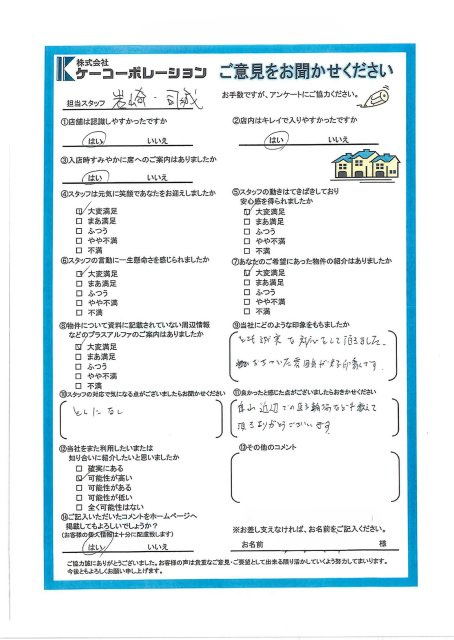 株式会社
ケーコーポレーション ご意見をお聞かせください
担当スタッフ 岩崎・司誠 お手数ですが、アンケートにご協力ください。
①店舗は認識しやすかったですか
はい いいえ
②店内はキレイで入りやすかったですか
はい いいえ
③入店時すみやかに席へのご案内はありましたか
はい いいえ
④スタッフは元気に笑顔であなたをお迎えしましたか
大変満足
まあ満足
ふつう
やや不満
不満
⑤スタッフの動きはてきぱきしており
安心感を得られましたか
大変満足
まあ満足
ふつう
やや不満
不満
⑥スタッフの言動に一生懸命さを感じられましたか
大変満足
まあ満足
ふつう
やや不満
不満
⑦あなたのご希望にあった物件の紹介はありましたか
大変満足
まあ満足
ふつう
やや不満
不満
⑧物件について資料に記載されていない周辺情報
などのプラスアルファのご案内はありましたか
大変満足
まあ満足
ふつう
やや不満
不満
⑨当社にどのような印象をもちましたか
とても誠実な対応をして頂きました。
おちついた雰囲気が好印象です。
⑩スタッフの対応で気になる点がございましたらお聞かせください
とくになし
⑪良かったと感じた点がございましたらおきかせください
近辺での駐輪場など教えて
頂きありがとうございます
⑫当社をまた利用したいまたは
知り合いに紹介したいと思いましたか
確実にある
可能性が高い
可能性がある
可能性が低い
全く可能性はない
⑬その他のコメント
⑭ご記入いただいたコメントをホームページへ
掲載してもよろしいでしょうか?
(お客様の個人情報は十分に配慮致します)
はい いいえ
※お差し支えなければ、お名前をご記入ください。
お名前 様
ご協力誠にありがとうございました。お客様の声は貴重なご意見・ご要望として出来る限り活かしていくよう努力してまいります。
今後ともよろしくお願い申し上げます。